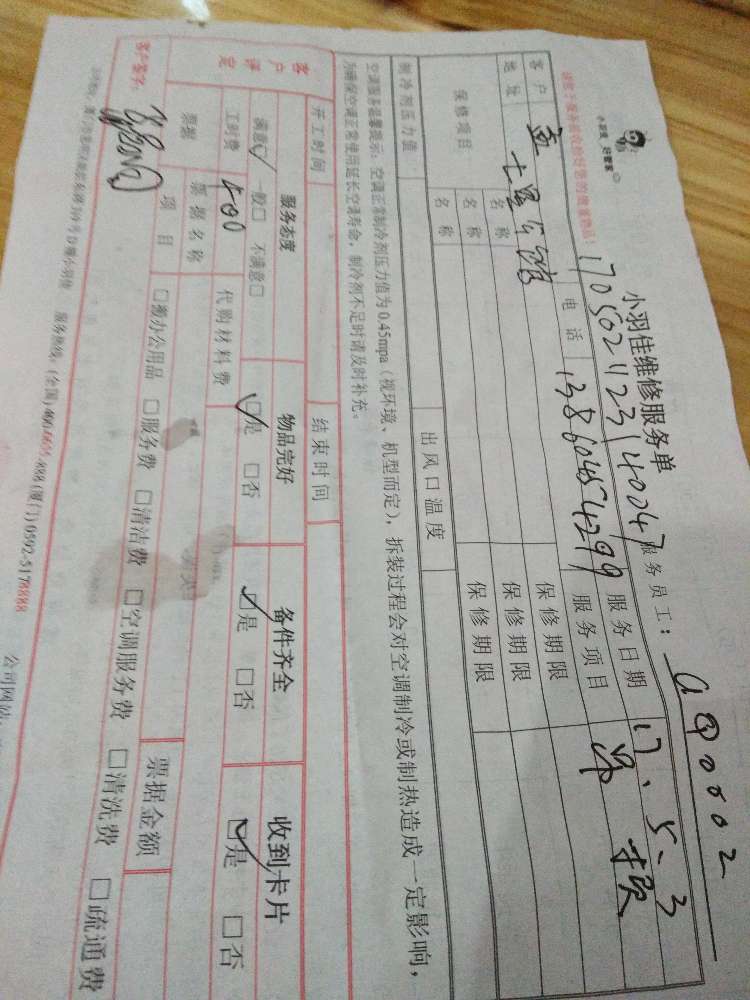 小羽佳 好管家
小羽佳维修服务单
170502112314004
服务员工:
客户
电话 13860454299
服务日期 17.5.3
地址 七星公馆
服务项目
保修项目
名称
保修期限
名称
保修期限
名称
保修期限
制冷剂压力值
出风口温度
空调服务温馨提示:空调正常制冷剂压力值为0.45mpa(视环境、机型而定),拆装过程会对空调制冷或制热造成一定影响,
为确保空调正常使用延长空调寿命,制冷剂不足时请及时补充。
开工时间
结束时间
客户评定
服务态度
物品完好
备件齐全
收到卡片
满意☑ 一般□ 不满意□
☑是 □否
☑是 □否
☑是 □否
工时费 400
代购材料费
票据
票据名称
票据金额
项目
□搬办公用品 □服务费 □清洁费 □空调服务费 □清洗费 □疏通费
客户签字:
服务热线:(全国)400-6695-888(厦门)0592-5178888
公司网站: